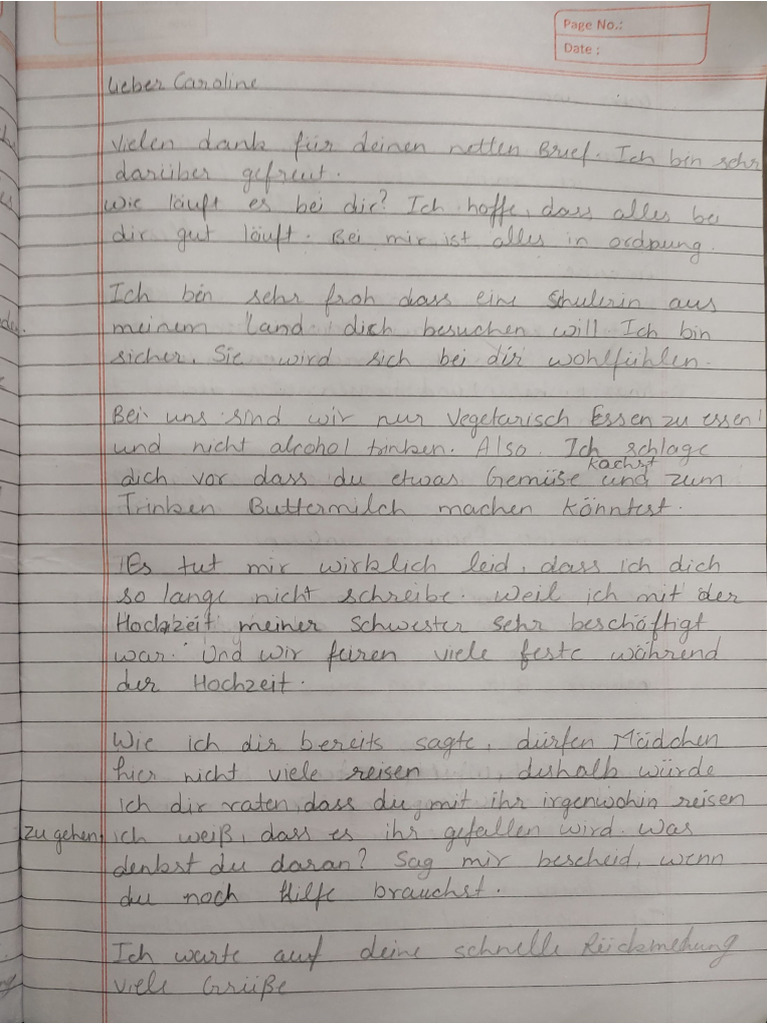 Page No.:
Date :
lieber Caroline
Vielen dank für deinen netten Brief. Ich bin sehr
darüber gefreut.
Wie läuft es bei dir? Ich hoffe, dass alles bei
dir gut läuft. Bei mir ist alles in ordnung.
Ich bin sehr froh dass eine Schulerin aus
meinem Land dich besuchen will. Ich bin
sicher, Sie wird sich bei dir wohlfühlen.
Bei uns sind wir nur Vegetarisch Essen zu essen
und nicht alcohol trinken. Also. Ich schlage
dich vor dass du etwas Gemüse kochst und zum
Trinken Buttermilch machen könntest.
Es tut mir wirklich leid, dass ich dich
so lange nicht schreibe. Weil ich mit der
Hochzeit meiner Schwester sehr beschäftigt
war. Und wir feiren viele feste während
der Hochzeit.
Wie ich dir bereits sagte, dürfen Mädchen
hier nicht viele reisen, deshalb würde
ich dir raten, dass du, mit ihr irgenwohin reisen
zu gehen, ich weiß, dass es ihr gefallen wird. Was
denkst du daran? Sag mir bescheid, wenn
du noch Hilfe brauchst.
Ich warte auf deine schnelle Rückmeldung
viele Grüße